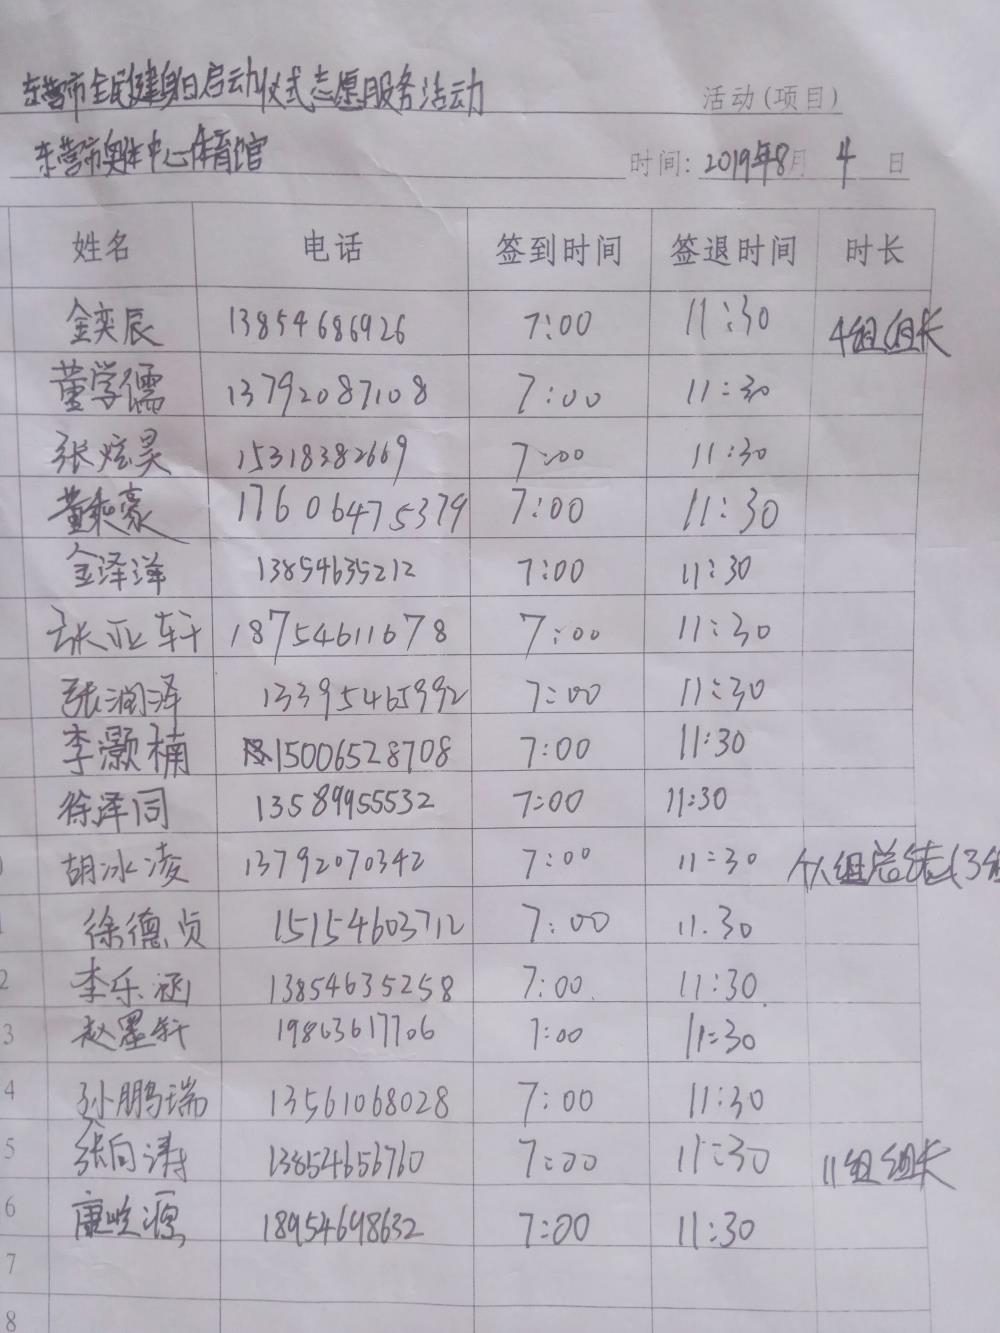 东营市全民健身日启动仪式志愿服务活动 活动(项目)
东营市奥体中心体育馆 时间: 2019年8月 4 日
姓名 电话 签到时间 签退时间 时长
金奕辰 13854686926 7:00 11:30 4组组长
董学儒 13792087108 7:00 11:30
张炫昊 15318382669 7:00 11:30
董和豪 17606475379 7:00 11:30
金泽洋 13854635212 7:00 11:30
张亚轩 18754611678 7:00 11:30
张润泽 13395465992 7:00 11:30
李灏楠 15006528708 7:00 11:30
徐泽同 13589955532 7:00 11:30
0 胡冰凌 13792070342 7:00 11:30 组总结(3组
1 徐德贞 15154603712 7:00 11.30
2 李乐涵 13854635258 7:00 11:30
3 赵墨轩 19863617706 7:00 11:30
4 孙鹏瑞 13561068028 7:00 11:30
5 张向涛 13854656760 7:00 11:30 11组组长
6 康峻源 18954698632 7:00 11:30
7
8